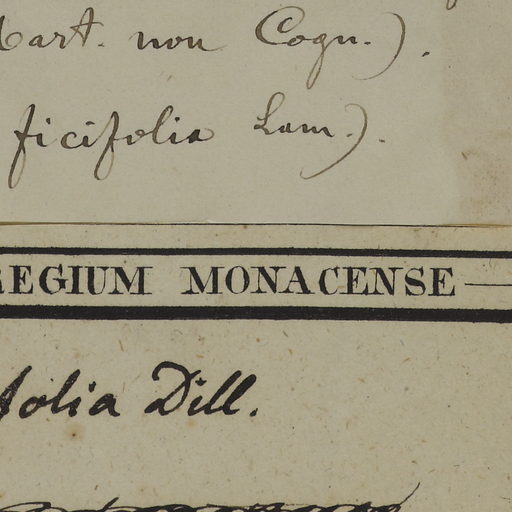 Mart. non Cogn.).
ficifolia Lam.).
REGIUM MONACENSE
folia Dill.